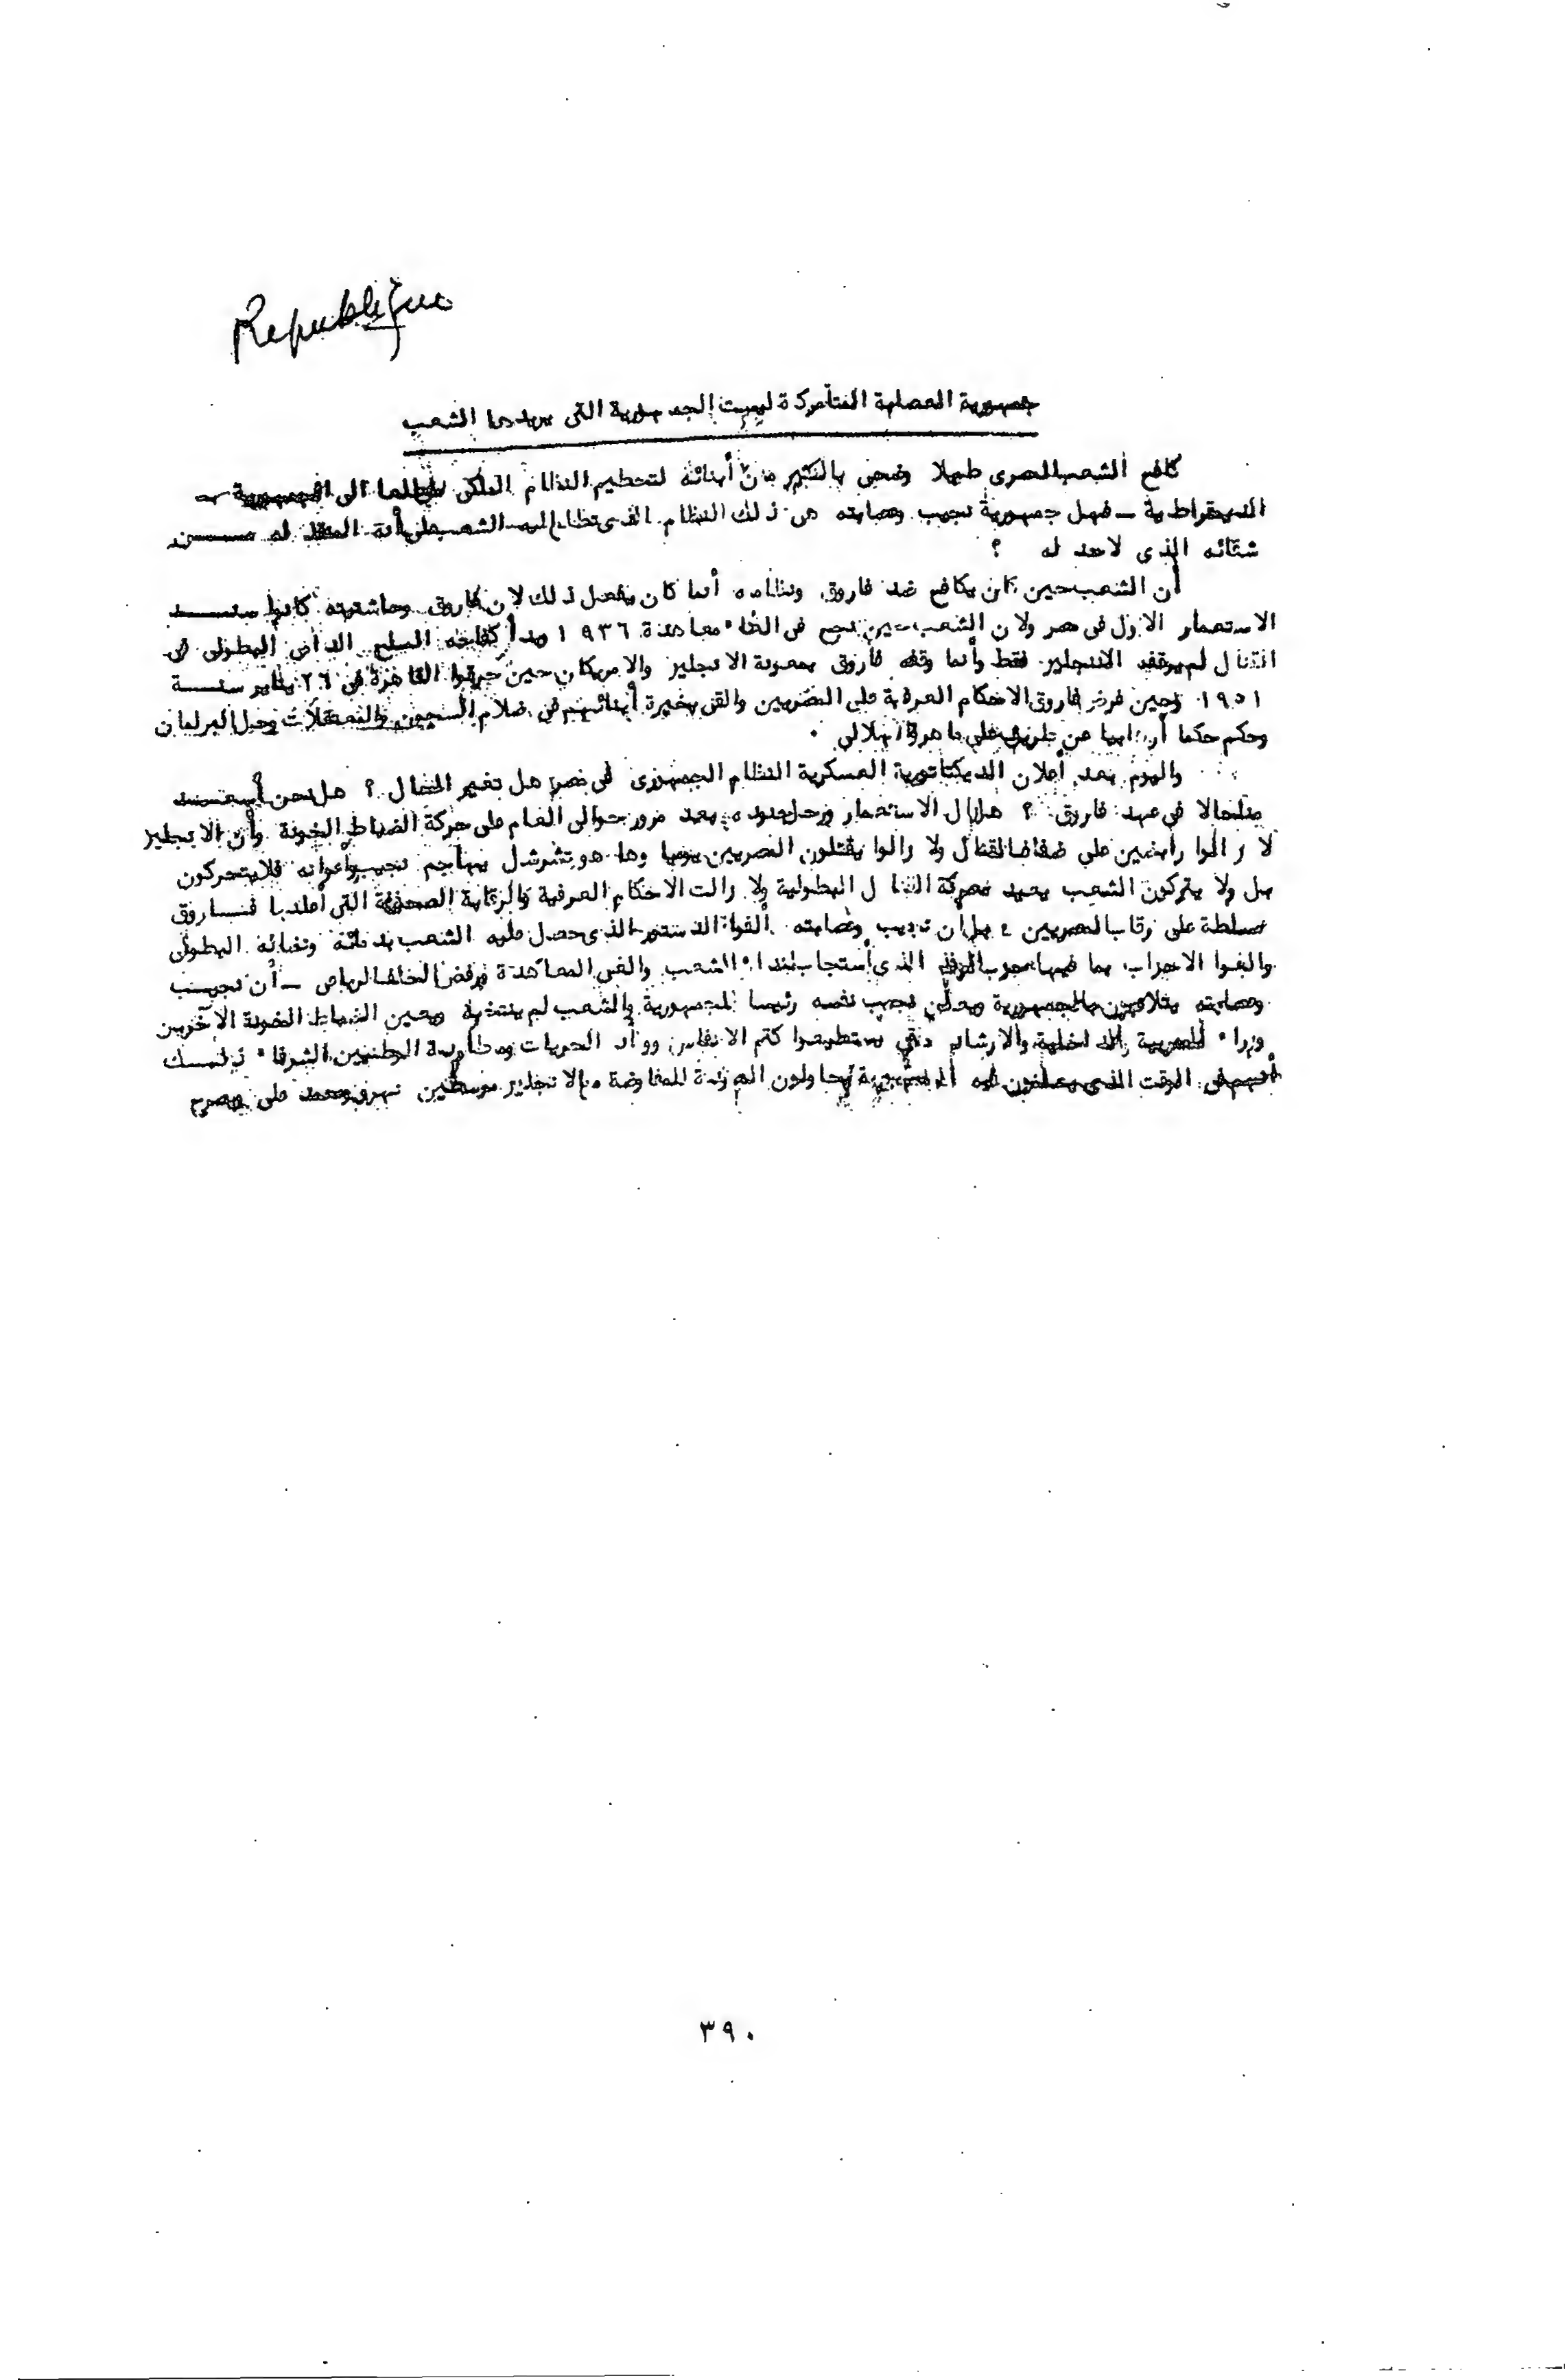 Republique
جمهورية العصابة المتأمركة ليست الجمهورية التى يريدها الشعب
كافح الشعب المصرى طويلا وضحى بالكثير من أبنائه لتحطيم النظام الملكى تطلعا الى الجمهورية
الديمقراطية – فهل جمهورية نجيب وعصابته هى ذلك النظام الذى تطلع اليه الشعب على أنه المنقذ له من
شقائه الذى لا حد له ؟
أن الشعب حين كان يكافح ضد فاروق ونظامه أنما كان يفعل ذلك لان فاروق وحاشيته كانوا سند
الاستعمار الاول فى مصر ولان الشعب حين نجح فى الغاء معاهدة ١٩٣٦ وبدأ كفاحه المسلح الدامى البطولى فى
القنال لم يوقفه الانجليز فقط وأنما وقفه فاروق بمعونة الانجليز والامريكان حين حرقوا القاهرة فى ٢٦ يناير سنة
١٩٥١ وحين فرض فاروق الاحكام العرفية على المصريين والقى بخيرة أبنائهم فى ظلام السجون والمعتقلات وحل البرلمان
وحكم حكما أرهابيا عن طريق على ماهر والهلالى .
واليوم بعد أعلان الديكتاتورية العسكرية النظام الجمهورى فى مصر هل تغير الحال ؟ هل نحن أسعد
حالا فى عهد فاروق ؟ هل زال الاستعمار ورحل جنوده بعد مرور حوالى العام على حركة الضباط الخونة وأن الانجليز
لا زالوا رابضين على ضفاف القنال ولا زالوا يقتلون المصريين يوميا وها هو تشرشل يهاجم نجيب وأعوانه فلا يتحركون
بل ولا يتركون الشعب يعيد معركة القنال البطولية ولا زالت الاحكام العرفية والرقابة الصحفية التى أعلنها فاروق
مسلطة على رقاب المصريين ، بل أن نجيب وعصابته ألغوا الدستور الذى حصل عليه الشعب بدمائه ونضاله البطولى
والغوا الاحزاب بما فيها حزب الوفد الذى أستجاب لنداء الشعب والغى المعاهدة ورفض الحلف الرباعى – أن نجيب
وعصابته يتلاعبون بالجمهورية ويعلن نجيب نفسه رئيسا للجمهورية والشعب لم ينتخبه ويعين الضباط الخونة الآخرين
وزراء للحربية والداخلية والارشاد حتى يستطيعوا كتم الانفاس ووأد الحريات ومطاردة الوطنيين الشرفاء
أنهم فى الوقت الذى يعلنون فيه الجمهورية يحاولون العودة للمفاوضة مع الانجليز موسطين نهرو ومحمد على ويصرح
٣٩٠